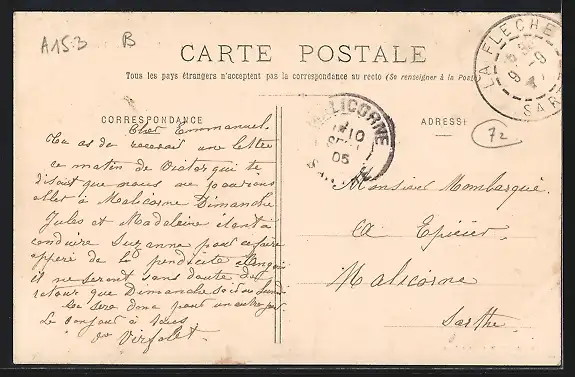 A15.3 B
CARTE POSTALE
Tous les pays étrangers n'acceptent pas la correspondance au recto (Se renseigner à la Poste
CORRESPONDANCE
Cher Emmanuel.
Tu as du recevoir une lettre
ce matin de Victor qui te
disait que nous ne pouvons
aller à Malicorne Dimanche
Jules et Madeleine étant à
conduire Suzanne pour se faire
opérer de la pendicite
il ne seront sans doute de
retour que Dimanche soir ou Lundi
Ce sera donc pour un autre jour.
Le bonjour à tous
Virfolet.
ADRESSE
72
Monsieur Mombarqué
à Epicier.
Malicorne
Sarthe.
LA FLECHE
SAR
MALICORNE
10
SEPT
05